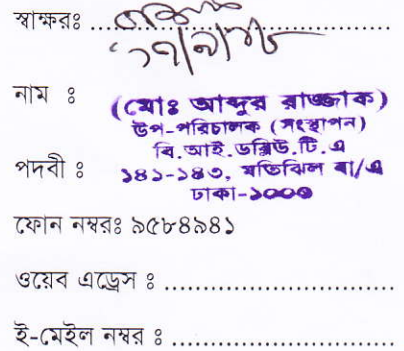 স্বাক্ষরঃ ..................
নাম ঃ (মোঃ আব্দুর রাজ্জাক)
উপ-পরিচালক (সংস্থাপন)
বি.আই.ডব্লিউ.টি.এ
পদবী ঃ ১৪১-১৪৩, মতিঝিল বা/এ
ঢাকা-১০০০
ফোন নম্বরঃ ৯৫৮৪৯৪১
ওয়েব এড্রেস ঃ ..............................
ই-মেইল নম্বর ঃ .............................